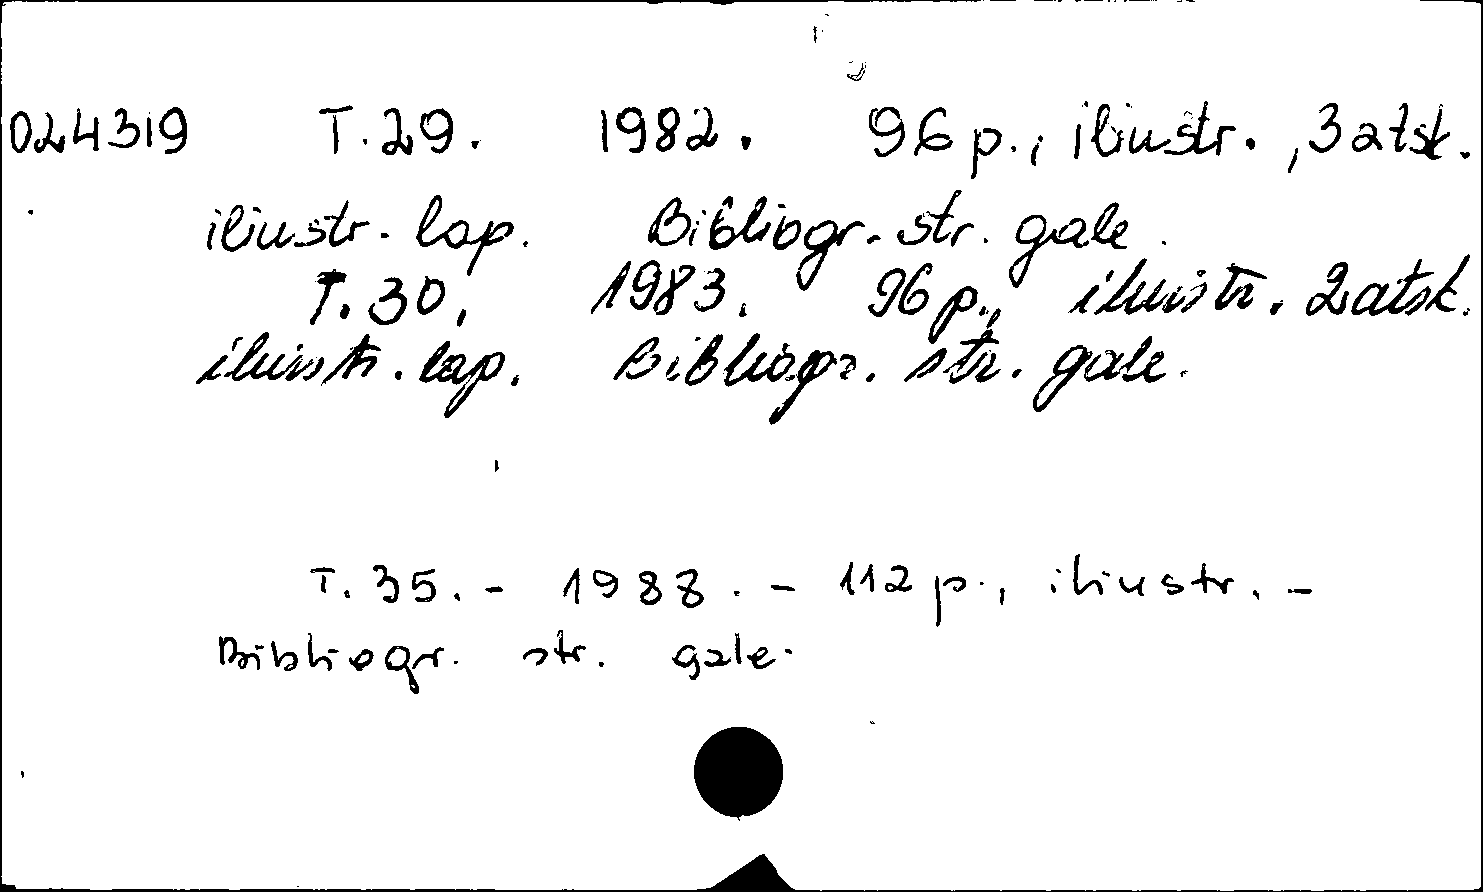 024319 T.29. 1982. 96 p., iliustr., 3 atsk.
iliustr. lap. Bibliogr. str. gale.
T.30. 1983. 96 p., iliustr. 2 atsk.
iliustr. lap. Bibliogr. str. gale.
T. 35. - 1988. - 112 p., iliustr. -
Bibliogr. str. gale.